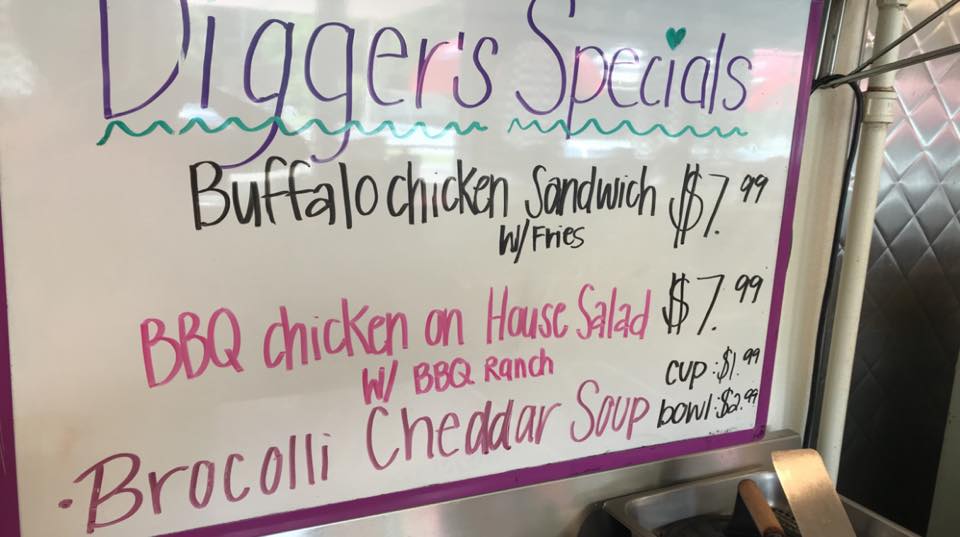 Digger's Specials
Buffalo chicken Sandwich $7.99
W/ Fries
BBQ chicken on House Salad $7.99
W/ BBQ Ranch
cup: $1.99
• Brocolli Cheddar Soup bowl: $2.99